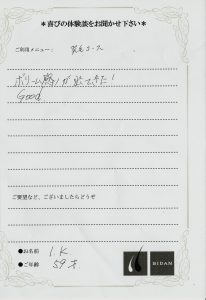 ＊喜びの体験談をお聞かせ下さい＊
ご利用メニュー： 育毛コース
ボリューム感が出てきた！
Good
ご要望など、ございましたらどうぞ
●お名前 I.K
●ご年齢 59才
BIDAN